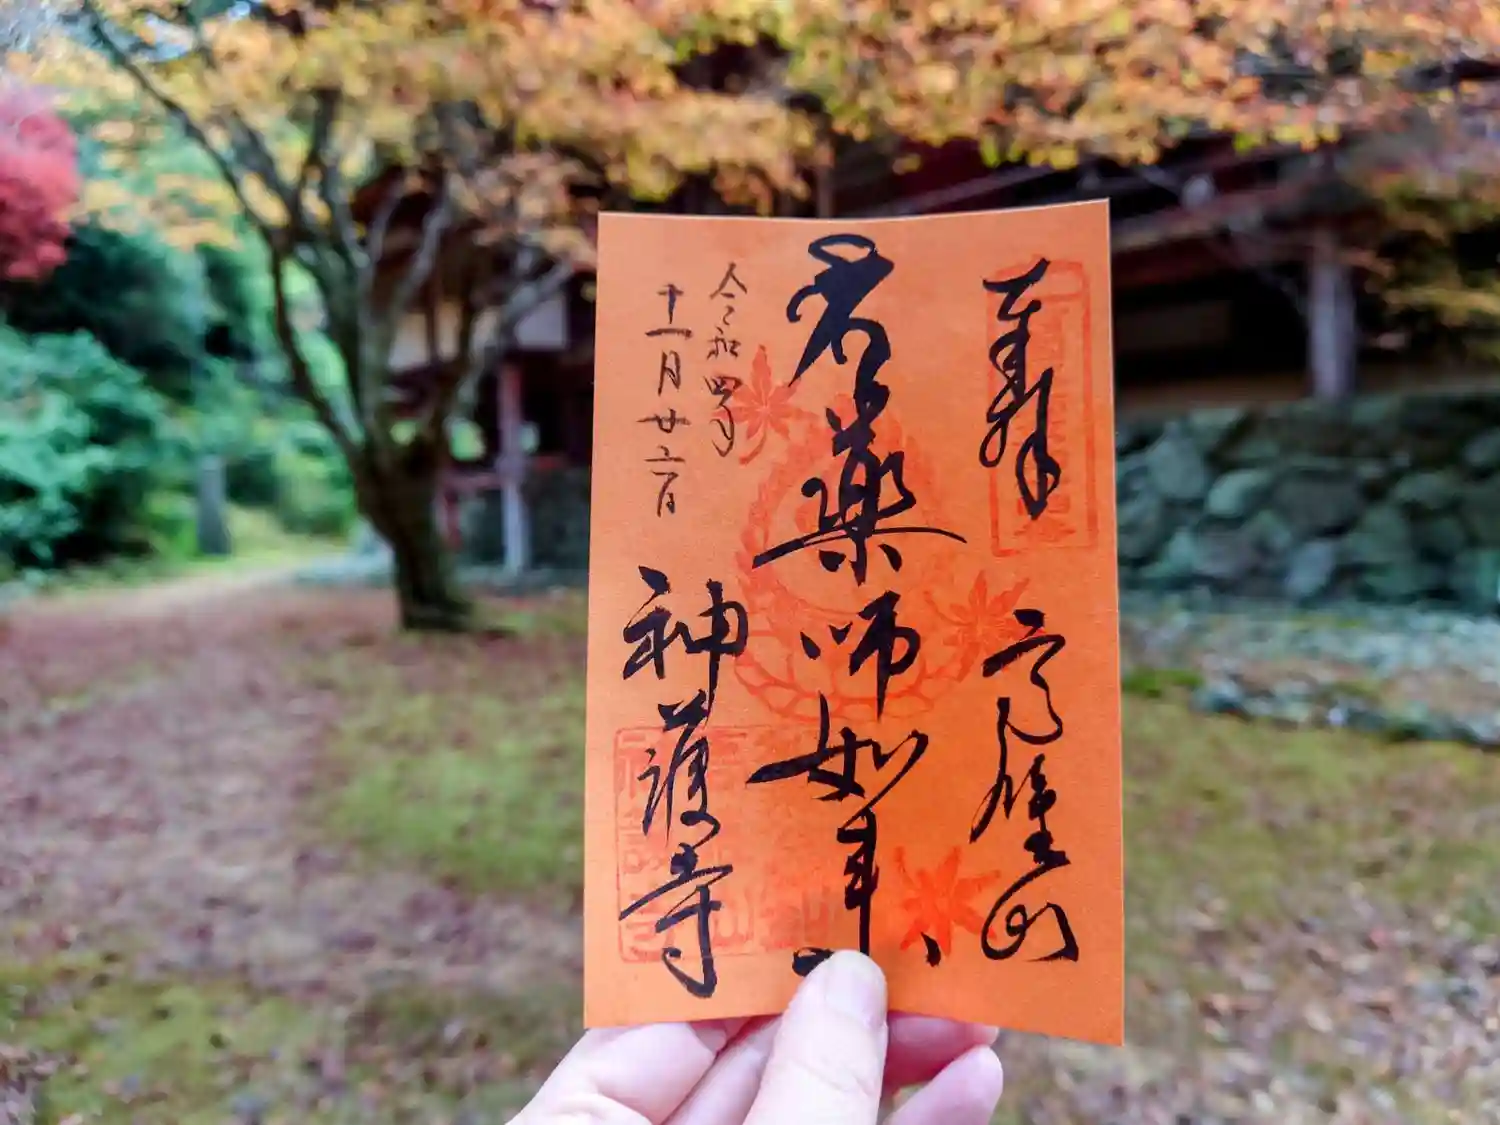 奉拝
高雄山
薬師如来
令和四年
十一月廿六日
神護寺